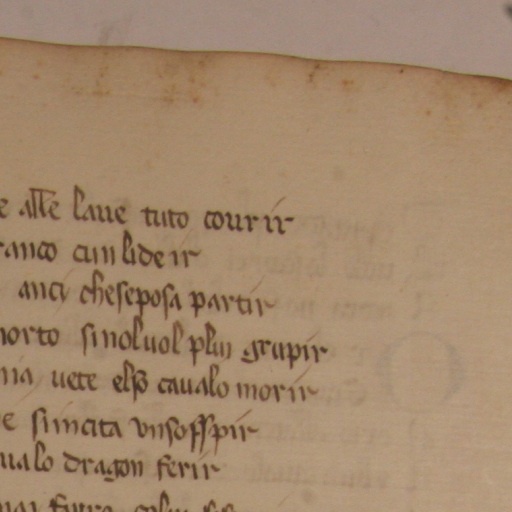 e alle laue tuto courir
ranco cun lide ir
anci cheseposa partir
morto sinoluol plui grupir
nia uete elso caualo morir
e simcita vnsosspir
ualo dragon ferir